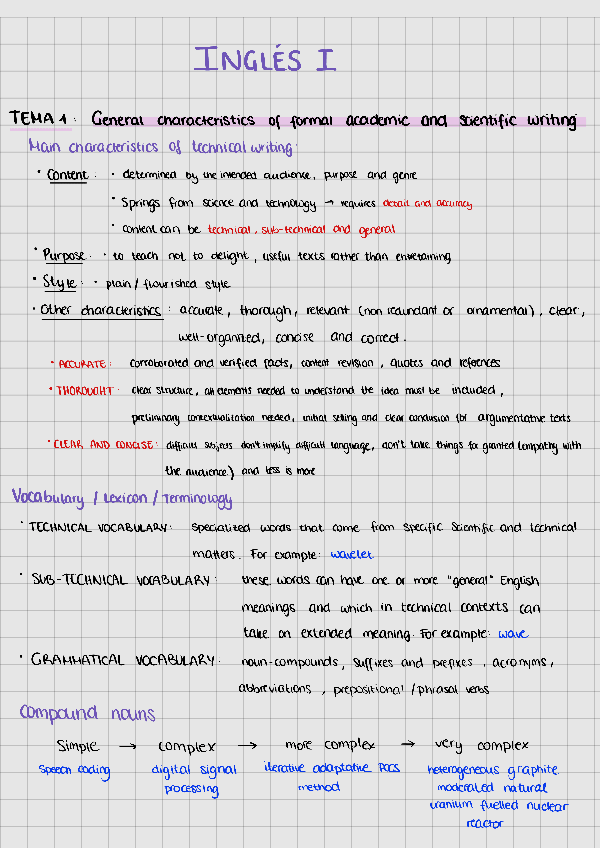 INGLÉS I
TEMA 1: General characteristics of formal academic and scientific writing
Main characteristics of technical writing:
· Content: · determined by the intended audience, purpose and genre
· Springs from science and technology → requires detail and accuracy
· content can be technical, sub-technical and general
· Purpose: · to teach not to delight, useful texts rather than entretaining
· Style: · plain / flourished style
· Other characteristics: accurate, thorough, relevant (non redundant or ornamental), clear,
well-organized, concise and correct.
· ACCURATE: corroborated and verified facts, content revision, quotes and references
· THOROUGHT: clear structure, all elements needed to understand the idea must be included,
preliminary contextualitation needed, initial setting and clear conclusion for argumentative texts
· CLEAR AND CONCISE: difficult subjects don't implify difficult language, don't take things for granted (empathy with
the audience) and less is more
Vocabulary / Lexicon / Terminology
· TECHNICAL VOCABULARY: specialized words that come from specific scientific and technical
matters. For example: wavelet
· SUB-TECHNICAL VOCABULARY: these words can have one or more "general" English
meanings and which in technical contexts can
take on extended meaning. For example: wave
· GRAMMATICAL VOCABULARY: noun-compounds, suffixes and prefixes, acronyms,
abbreviations, prepositional / phrasal verbs
Compound nouns
Simple → complex → more complex → very complex
speech coding digital signal iterative adaptative POCS heterogeneous graphite
processing method moderated natural
uranium fuelled nuclear
reactor